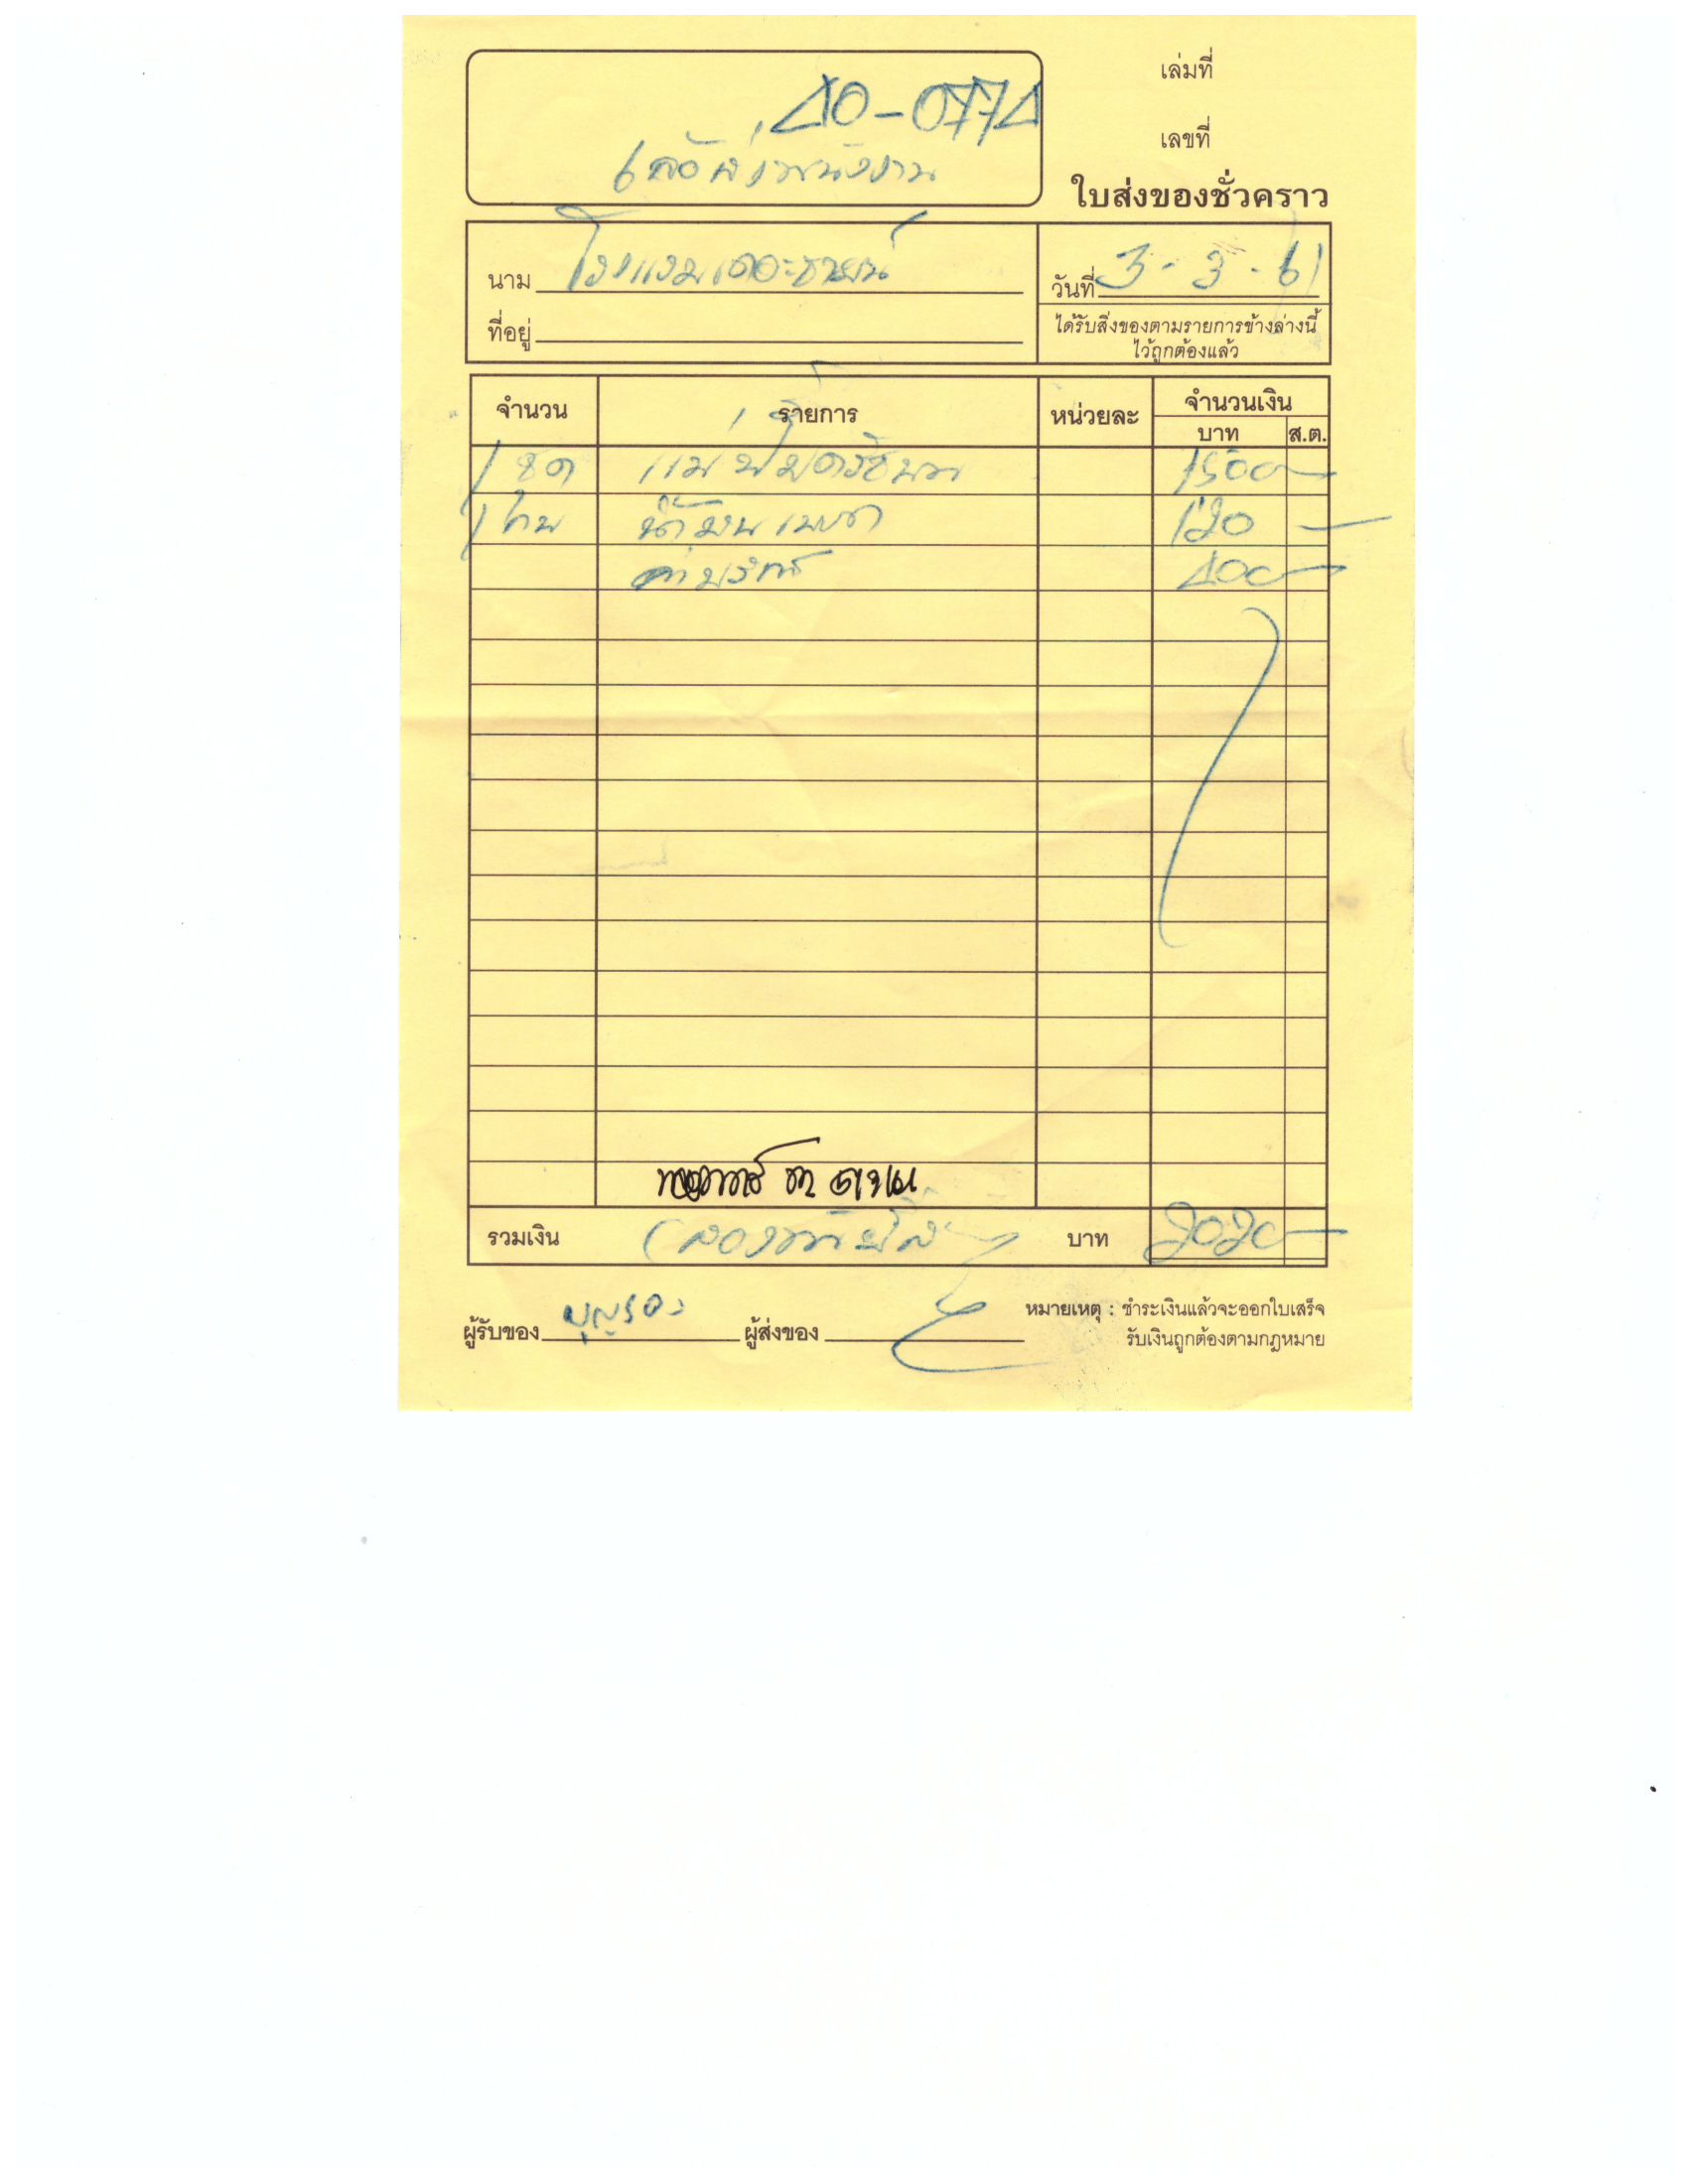 40-0774
เล่มที่
เลขที่
ใบส่งของชั่วคราว
นาม โรงแรมเดอะ
วันที่ 3-3-61
ที่อยู่
ได้รับสิ่งของตามรายการข้างล่างนี้
ไว้ถูกต้องแล้ว
จำนวน รายการ หน่วยละ จำนวนเงิน
บาท ส.ต.
1 ชุด แม่ปั๊ม 1500-
1 น้ำมันเบรก 120 -
ค่าบริการ 400-
รวมเงิน บาท 2020-
ผู้รับของ บุญรอง ผู้ส่งของ
หมายเหตุ : ชำระเงินแล้วจะออกใบเสร็จ
รับเงินถูกต้องตามกฎหมาย